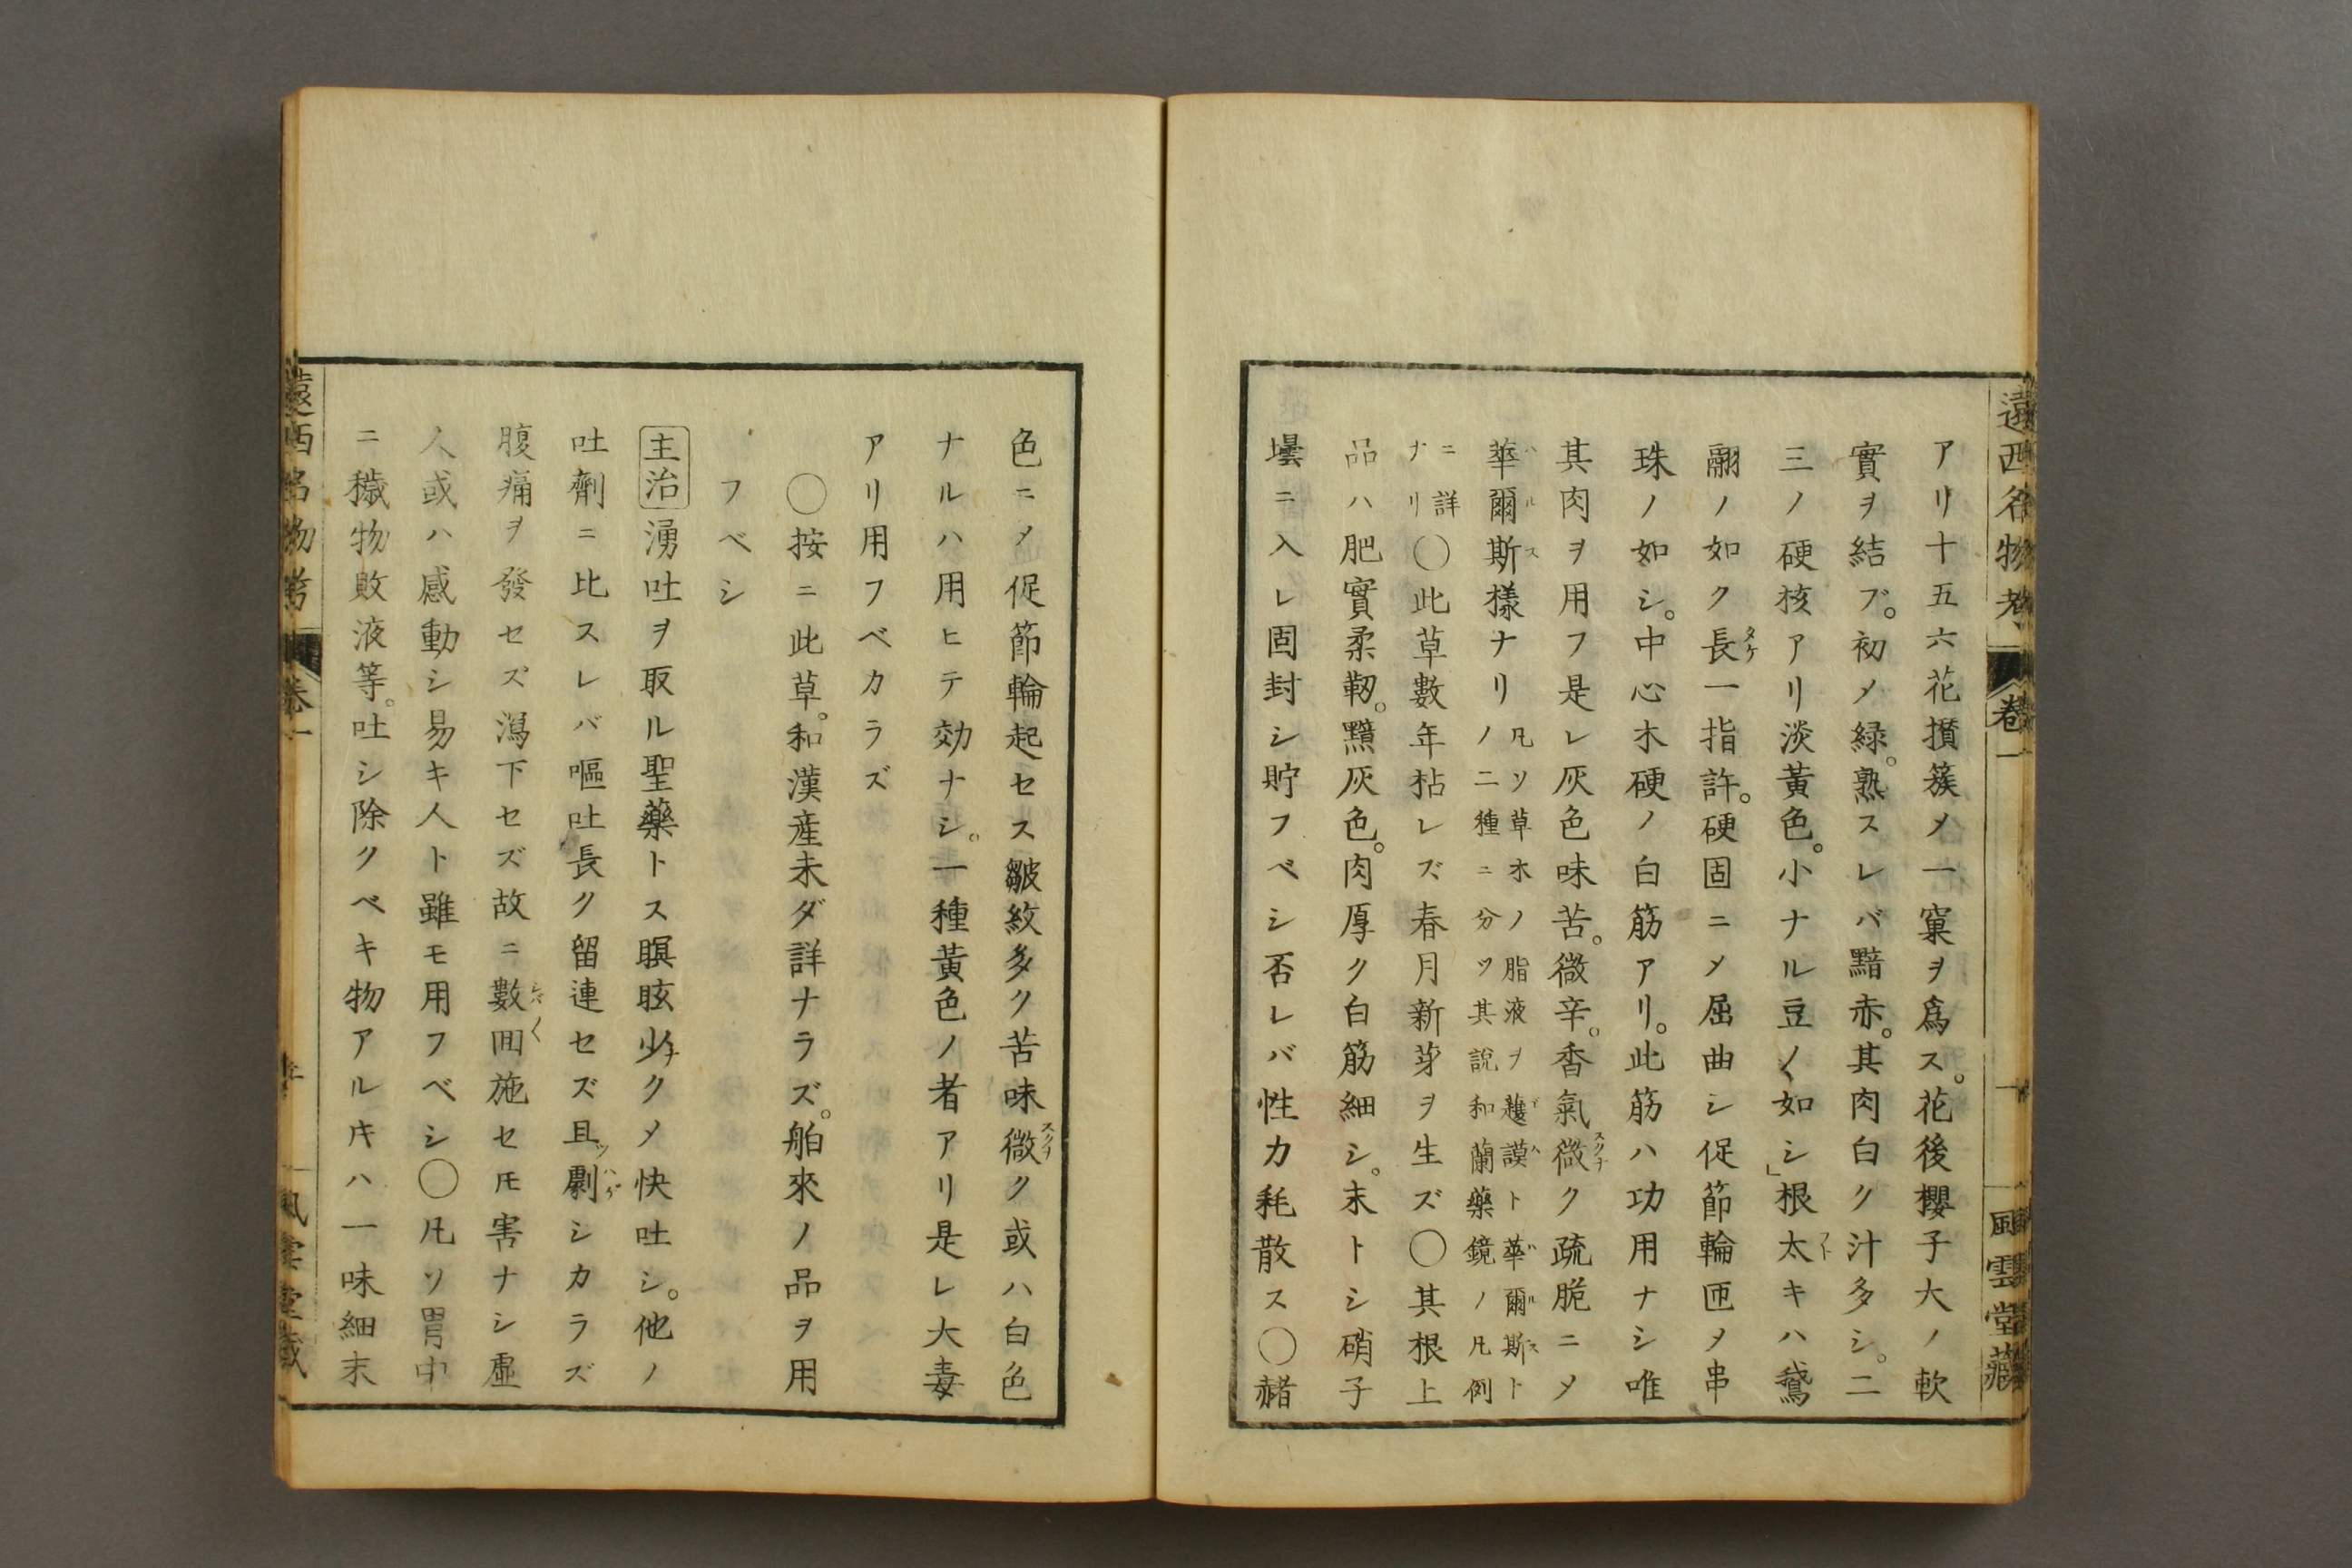 遠西名物考 卷一 一 風雲堂藏
アリ十五六花攢簇メ一窠ヲ爲ス。花後櫻子大ノ軟
實ヲ結ブ。初メ緑。熟スレバ黯赤。其肉白ク汁多シ。二
三ノ硬核アリ淡黃色。小ナル豆ノ如シ」根太キハ鵞
翮ノ如ク長一指許。硬固ニメ屈曲シ促節輪匝メ串
珠ノ如シ。中心木硬ノ白筋アリ。此筋ハ功用ナシ唯
其肉ヲ用フ是レ灰色味苦。微辛。香氣微ク疏脆ニメ
華爾斯樣ナリ凡ソ草木ノ脂液ヲ護謨ト華爾斯ト
ノ二種ニ分ツ其說和蘭藥鏡ノ凡例
ニ詳
ナリ〇此草數年枯レズ春月新芽ヲ生ズ〇其根上
品ハ肥實柔靱。黯灰色。肉厚ク白筋細シ。末トシ硝子
壜ニ入レ固封シ貯フベシ否レバ性力耗散ス〇赭
色ニメ促節輪起セス皺紋多ク苦味微ク或ハ白色
ナルハ用ヒテ効ナシ。一種黃色ノ者アリ是レ大毒
アリ用フベカラズ
〇按ニ此草。和漢産未ダ詳ナラズ。舶來ノ品ヲ用
フベシ
主治 湧吐ヲ取ル聖藥トス瞑眩少クメ快吐シ。他ノ
吐劑ニ比スレバ嘔吐長ク留連セズ且劇シカラズ
腹痛ヲ發セズ瀉下セズ故ニ數囬施セ𪜈害ナシ虛
人或ハ感動シ易キ人ト雖モ用フベシ〇凡ソ胃中
ニ穢物敗液等。吐シ除クベキ物アル片ハ一味細末
遠西名物考 卷一 風雲堂藏